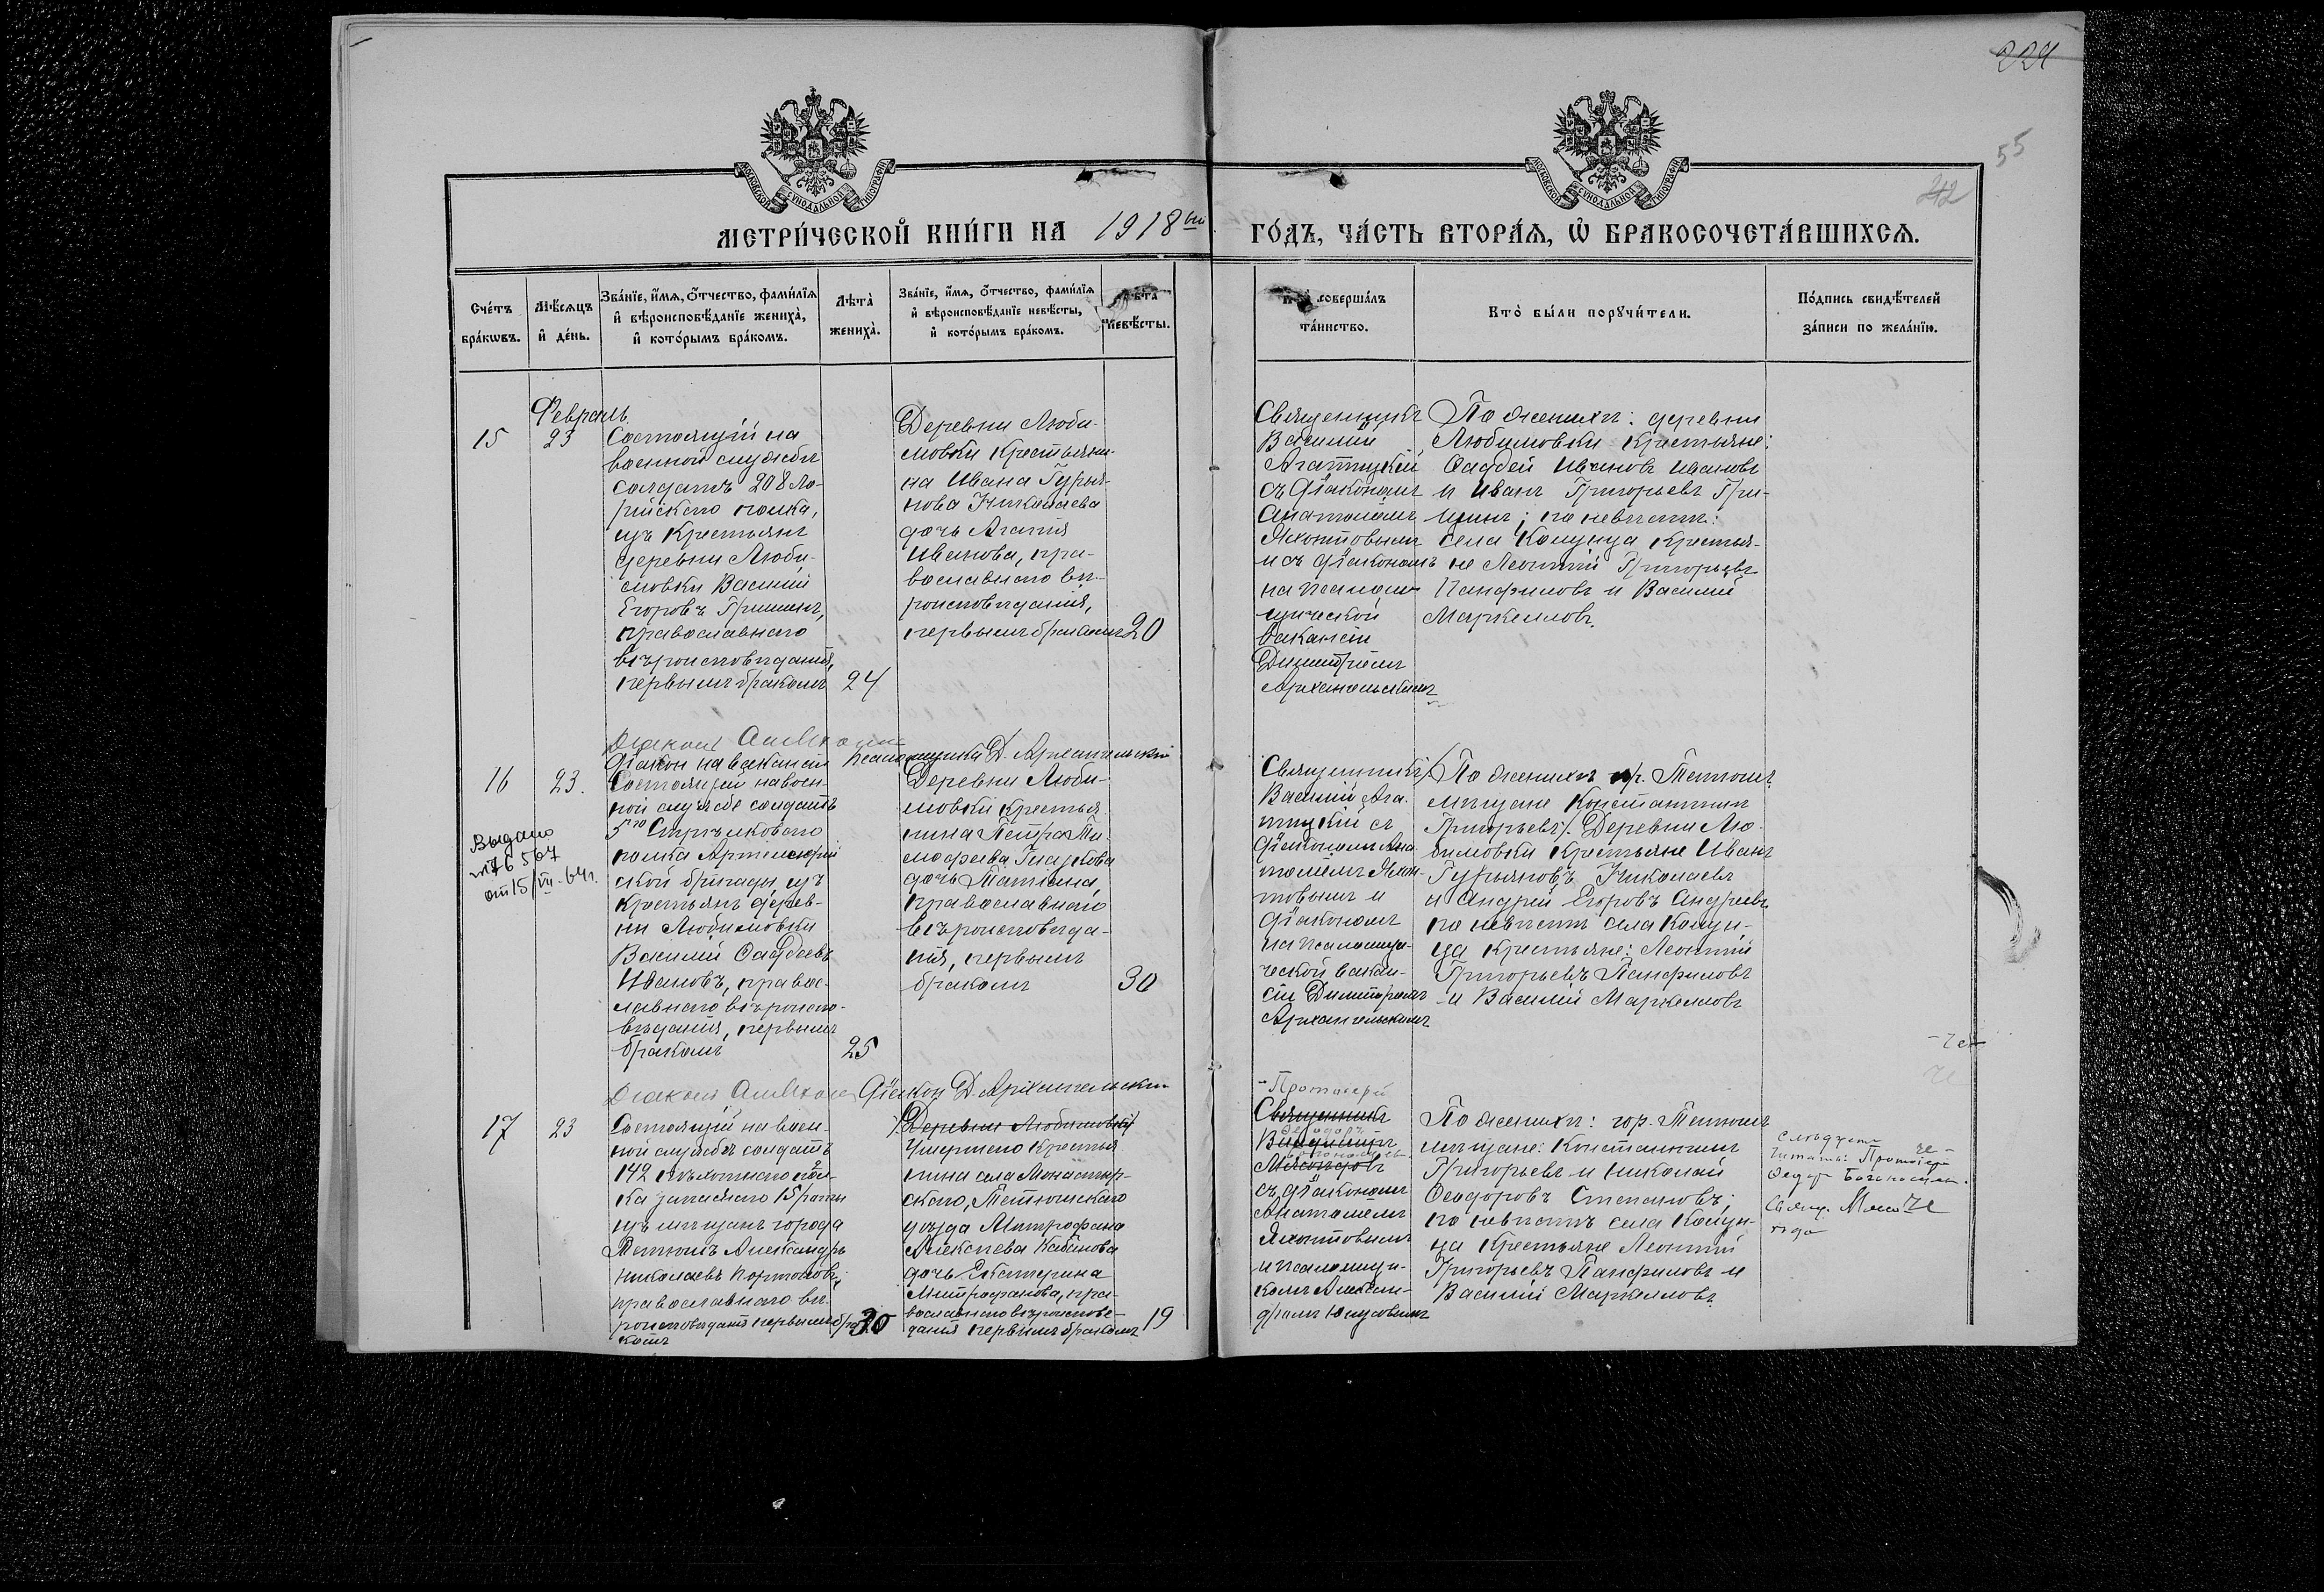 224
55
42
МОСКОВСКОЙ СѴНОДАЛЬНОЙ ТИПОГРАФІИ
МОСКОВСКОЙ СѴНОДАЛЬНОЙ ТИПОГРАФІИ
МЕТРИ́ЧЕСКОЙ КНИ́ГИ НА 1918ый ГО́ДЪ, ЧА́СТЬ ВТОРА́Я, Ѽ БРАКОСОЧЕТА́ВШИХСЯ.
Сче́тъ бра́кѡвъ.
Мѣ́сяцъ и҆ де́нь.
Зва́нїе, и҆́мя, ѻ҆́тчество, фами́лїя и҆ вѣроисповѣ́данїе жениха̀, и҆ кото́рымъ бра́комъ.
Лѣта̀ жениха̀.
Зва́нїе, и҆́мя, ѻ҆́тчество, фами́лїя и҆ вѣроисповѣ́данїе невѣ́сты, и҆ кото́рымъ бра́комъ.
Лѣта̀ невѣ́сты.
Кто̀ соверша́лъ та́инство.
Кто̀ бы́ли порꙋчи́тели.
По́дпись свидѣ́телей за́писи по жела́нїю.
Февраль
15
23
Состоящій на
военной службѣ
солдатъ 208 Ло-
рійского полка,
изъ крестьянъ
деревни Люби-
мовки Василій
Егоровъ Гришинъ,
православнаго
вѣроисповѣданія,
первымъ бракомъ
24
Деревни Люби-
мовки крестьяни-
на Ивана Гурья-
нова Николаева
дочь Агапія
Иванова, пра-
вославнаго вѣ-
роисповѣданія,
первымъ бракомъ
20
Священникъ
Василій
Агатицкій
съ діакономъ
Анатоліемъ
Яхонтовымъ
и съ діакономъ
на псаломщ
щической
вакансіи
Димитріемъ
Архангельскимъ
По женихѣ: деревни
Любимовки крестьяне:
Фаддей Ивановъ Ивановъ
и Иванъ Григорьевъ Гри-
шинъ; по невѣстѣ:
села Кошунца крестья-
не Леонтій Григорьевъ
Панфиловъ и Василій
Маркелловъ.
Діаконъ на вакансіи псаломщика Д. Архангельскій
16
23.
Выдано
№76507
от 15/VII-64г.
Состоящій на воен-
ной службе солдатъ
5го Стрѣлковаго
полка Артиллерій
ской бригады, изъ
крестьянъ дерев-
ни Любимовки
Василій Фаддеевъ
Ивановъ, правос-
лавнаго вѣроиспо-
вѣданія, первымъ
бракомъ
25
Деревни Люби-
мовки крестья-
нина Петра Ти-
мофеева Гнаркова
дочь Татіана,
православнаго
вѣроисповѣда-
нія, первымъ
бракомъ
30
Священникъ
Василій Ага-
тицкій съ
діакономъ Ана-
толіемъ Яхон-
товымъ и
діакономъ
на псаломщи-
ческой вакан-
сіи Димитріемъ
Архангельскимъ
По женихѣ гор. Тетюшъ
мѣщане Константинъ
Григорьевъ. Деревни Лю-
бимовки крестьяне Иванъ
Гурьяновъ Николаевъ
и Андрей Егоровъ Андреевъ
по невѣстѣ села Кошун-
ца крестьяне: Леонтій
Григорьевъ Панфиловъ
и Василій Маркелловъ
Діаконъ Д. Архангельскій
17
23
Состоящій на воен-
ной службѣ солдатъ
142 пѣхотнаго пол-
ка запаснаго 15 роты
изъ мѣщанъ города
Тетюшъ Александръ
Николаевъ Портновъ,
православнаго вѣ-
роисповѣданія первымъ бра
комъ
30
Деревни Любимовки
Умершаго крестья
нина села Монастыр-
скаго, Тетюшскаго
уѣзда Митрофана
Алексѣева Кабанова
дочь Екатерина
Митрофанова, пра-
вославнаго вѣроисповѣ-
данія первымъ бракомъ
19
Протоіерей
Священникъ
Феодоръ
съ діакономъ
Анатоліемъ
Яхонтовымъ
и псаломщи-
комъ Алексан-
дромъ Юнусовымъ
По женихѣ: гор. Тетюшъ
мѣщане: Константинъ
Григорьевъ и Николай
Феодоровъ Степановъ;
по невѣстѣ села Кошун-
ца крестьяне Леонтій
Григорьевъ Панфиловъ и
Василій Маркелловъ.
Слѣдуетъ
читать: Протоіерей